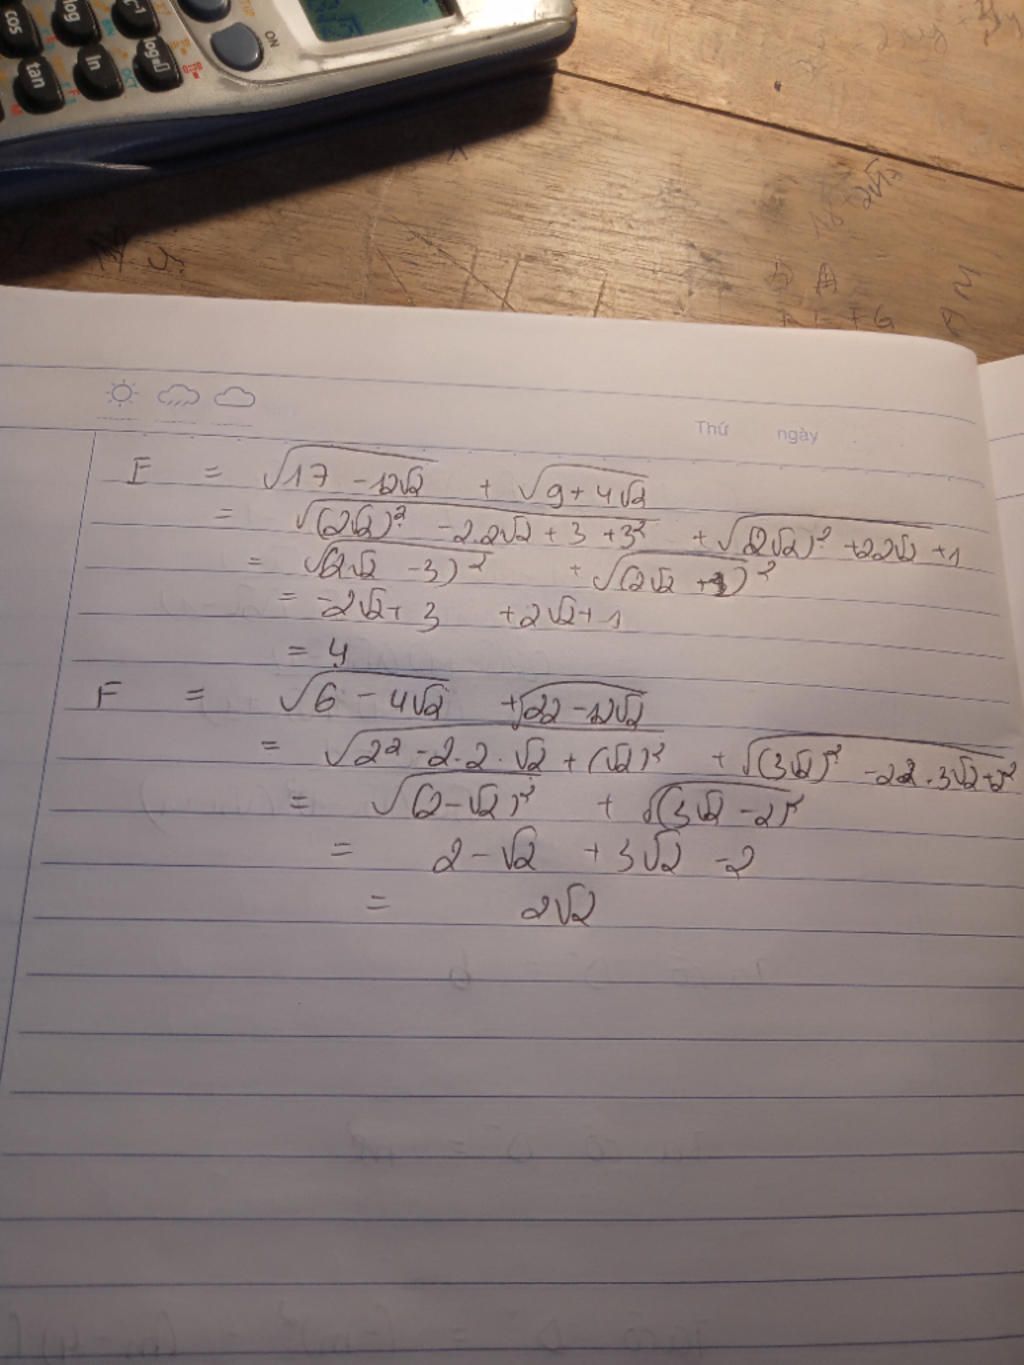 cos
log
tan
ln
log
ON
OCT
Thứ ngày
E = √17 - 12√2 + √9 + 4√2
= √(2√2)² - 2.2√2 + 3 + 3² + √(2√2)² + 22√2 + 1
= √(2√2 - 3)² + √(2√2 + 1)²
= -2√2 + 3 + 2√2 + 1
= 4
F = √6 - 4√2 + √22 - 12√2
= √2² - 2.2.√2 + (√2)² + √(3√2)² - 22.3√2 + 2²
= √(2 - √2)² + √(3√2 - 2)²
= 2 - √2 + 3√2 - 2
= 2√2